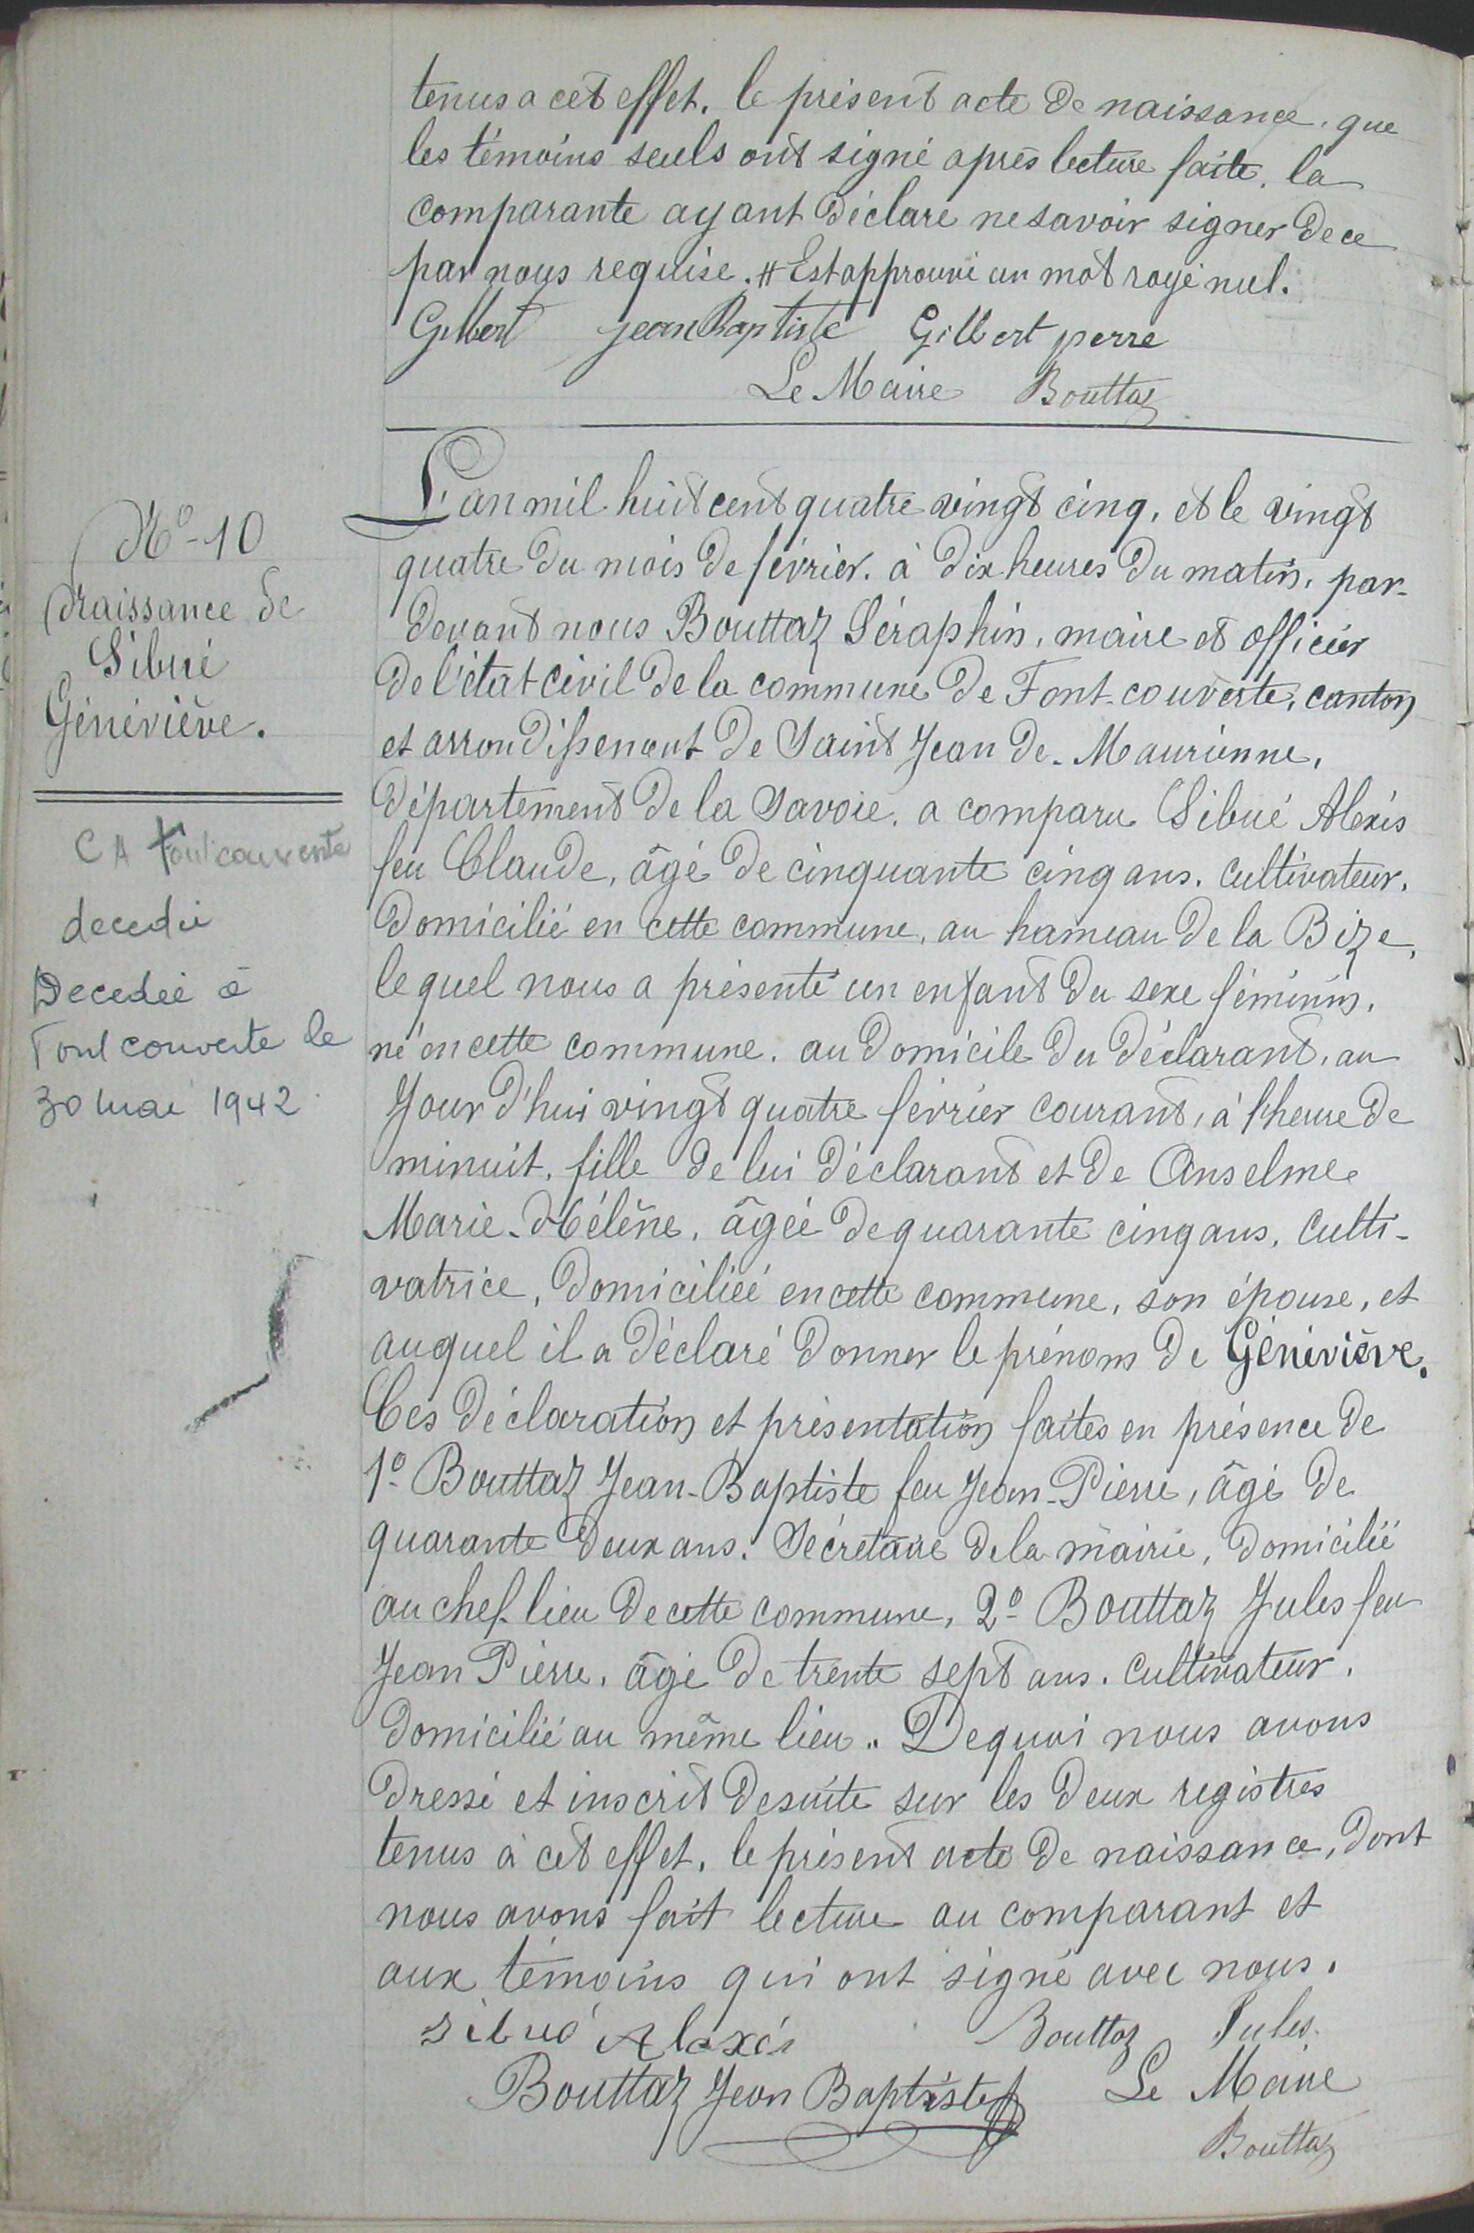 tenus a cet effet. le présent acte de naissance. que
les témoins seuls ont signé après lecture faite. la
comparante ayant déclaré ne savoir signer de ce
par nous requise. # Est approuvé un mot rayé nul.
Gilbert jean Baptiste Gilbert pierre
Le Maire Bouttaz
N° - 10
Naissance de
Sibué
Généviève.
C A Fontcouverte
decedée
Decedée à
Fontcouverte le
30 mai 1942
L'an mil huit cent quatre vingt cinq, et le vingt
quatre du mois de février. à dix heures du matin, par-
devant nous Bouttaz Séraphin, maire et officier
de l'état civil de la commune de Font-couverte, canton
et arrondissement de Saint Jean de-Maurienne,
département de la Savoie, a comparu Sibué Alexis
feu Claude, âgé de cinquante cinq ans. cultivateur.
domicilié en cette commune, au hameau de la Bize,
lequel nous a présenté un enfant du sexe féminin,
né en cette commune. au domicile du déclarant, au
jour d'hui vingt quatre février courant, à l'heure de
minuit, fille de lui déclarant et de Anselme
Marie-Hélène, âgée de quarante cinq ans, culti-
vatrice, domiciliée en cette commune, son épouse, et
auquel il a déclaré donner le prénom de Généviève.
Ces déclaration et présentation faites en présence de
1° Bouttaz Jean-Baptiste feu Jean-Pierre, âgé de
quarante deux ans. Sécrétaire de la mairie, domicilié
au chef-lieu de cette commune, 2° Bouttaz Jules feu
Jean Pierre, âgé de trente sept ans. cultivateur.
domicilié au même lieu.. De quoi nous avons
dressé et inscrit de suite sur les deux registres
tenus à cet effet, le présent acte de naissance, dont
nous avons fait lecture au comparant et
aux témoins qui ont signé avec nous.
sibué Alexis Bouttaz Jules
Bouttaz Jean Baptiste Le Maire
Bouttaz